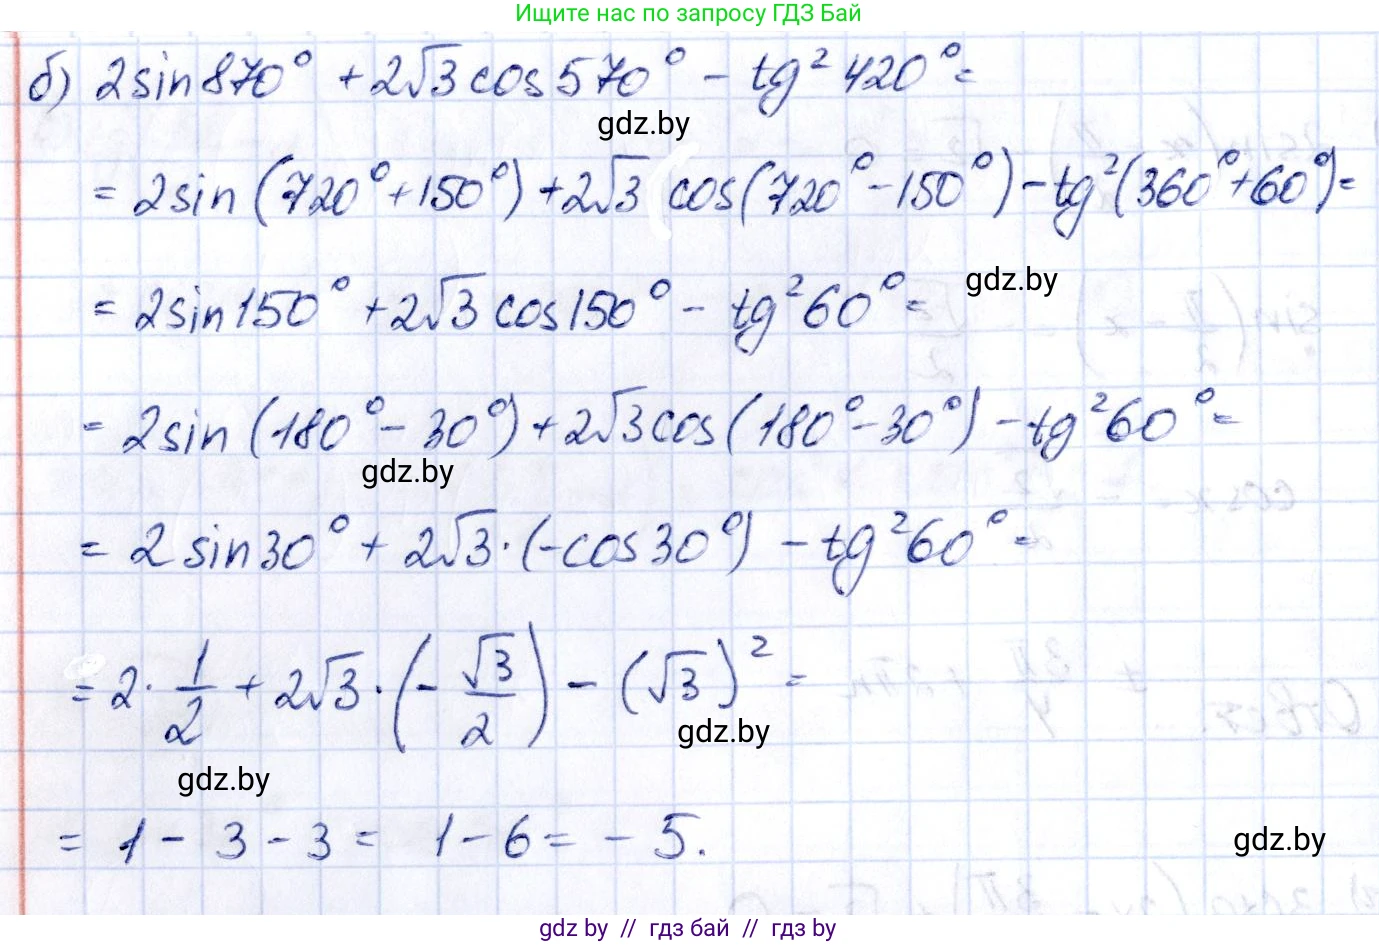 Ищите нас по запросу ГДЗ Бай
б) 2sin870° + 2√3cos570° - tg²420° =
gdz.by
= 2sin(720° + 150°) + 2√3 cos(720° - 150°) - tg²(360° + 60°) =
gdz.by
= 2sin150° + 2√3cos150° - tg²60° =
= 2sin(180° - 30°) + 2√3cos(180° - 30°) - tg²60° =
gdz.by
= 2sin30° + 2√3·(-cos30°) - tg²60° =
= 2·1/2 + 2√3·(-√3/2) - (√3)² =
gdz.by
gdz.by
= 1 - 3 - 3 = 1 - 6 = -5.
gdz.by
gdz by // гдз бай // гдз by